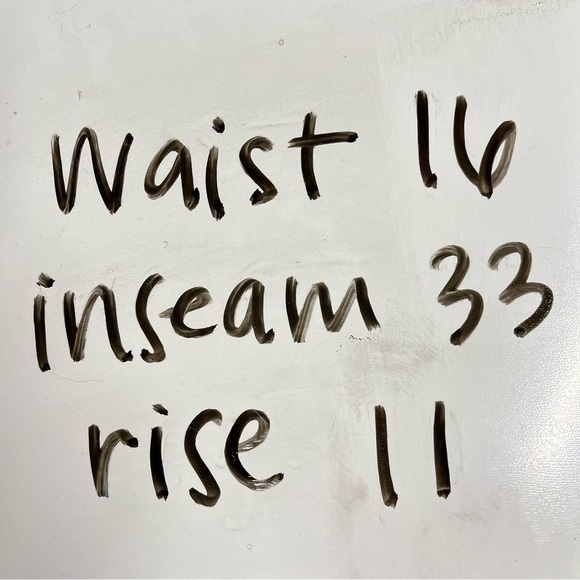 waist 16
inseam 33
rise 11